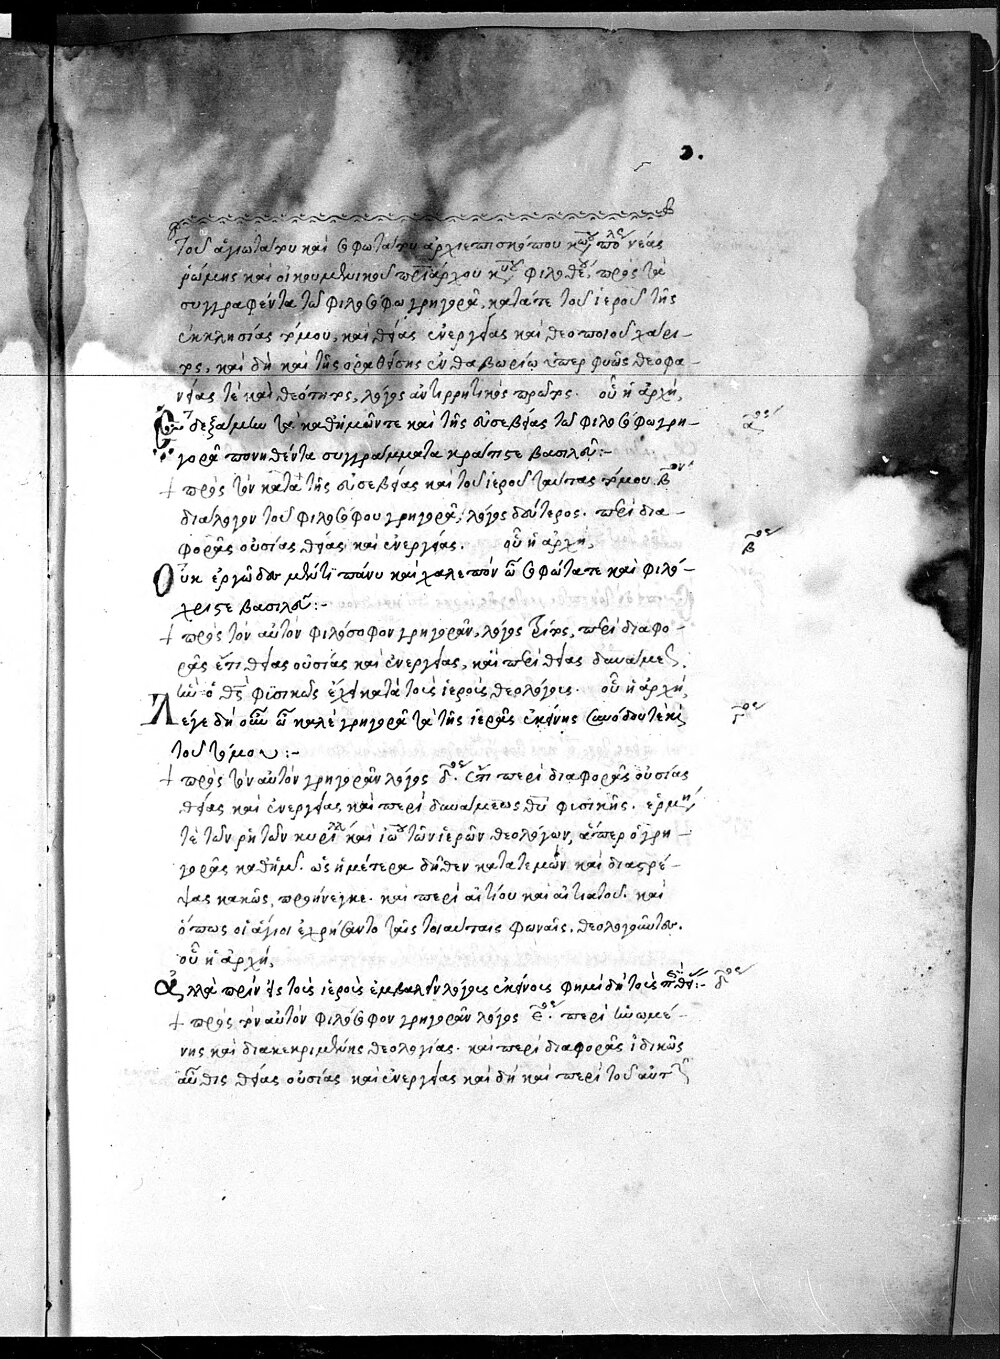 Τοῦ ἁγιωτάτου καὶ σοφωτάτου ἀρχιεπισκόπου κωνπόλεως νέας
ῥώμης καὶ οἰκουμενικοῦ πριάρχου κυροῦ φιλοθέου, πρὸς τὰ
συγγραφέντα τῶ φιλοσόφω γρηγορᾶ, κατά τε τοῦ ἱεροῦ τῆς
ἐκκλησίας τόμου, καὶ θείας ἐνεργείας καὶ θεοποιοῦ χάρι-
τος, καὶ δὴ καὶ τῆς ὁραθείσης ἐν θαβωρίω ὑπερφυῶς θεοφα-
νείας τὲ καὶ θεότητος, λόγος ἀντιρρητικὸς πρῶτος. οὗ ἡ ἀρχή,
Ἐδεξάμην τὰ καθ' ἡμῶν τε καὶ τῆς εὐσεβείας τῶ φιλοσόφω γρη-
γορᾶ πονηθέντα συγγράμματα κράτιστε βασιλεῦ:-
α^ος
+ πρὸς τὸν κατὰ τῆς εὐσεβείας καὶ τοῦ ἱεροῦ ταύτης τόμου β^ον
διάλογον τοῦ φιλοσόφου γρηγορᾶ, λόγος δεύτερος. περὶ δια-
φορᾶς οὐσίας θείας καὶ ἐνεργείας. οὗ ἡ ἀρχή,
β^ος
Οὐκ ἔργῶδες μέντι πάνυ καὶ χαλεπὸν ὦ σοφώτατε καὶ φιλό-
χριστε βασιλεῦ:-
+ πρὸς τὸν αὐτὸν φιλόσοφον γρηγορᾶν, λόγος τρίτος, περὶ διαφο-
ρᾶς ἔτι θείας οὐσίας καὶ ἐνεργείας, καὶ περὶ θείας δυνάμεως,
ἣν ὁ θς φϋσικῶς ἔχει κατὰ τοὺς ἱεροὺς θεολόγους. οὗ ἡ ἀρχή,
Λέγε δὴ οὖν ὦ καλὲ γρηγορᾶ τὰ τῆς ἱερᾶς ἐκείνης συνόδου τὲ καὶ
γ^ος
τοῦ τόμου:-
+ πρὸς τὸν αὐτὸν γρηγορᾶν λόγος δ^ος. ἔτι περὶ διαφορᾶς οὐσίας
θείας καὶ ἐνεργείας καὶ περὶ δυνάμεως θυ φυσικῆς. ἑρμη
τὲ τῶν ῥητῶν κυρίλλ καὶ ἰω τῶν ἱερῶν θεολόγων, ἅπερ ὁ γρη-
γορᾶς καθ' ἡμῶν ὡς ἡμέτερα δῆθεν κατατεμὼν καὶ διαστρέ-
ψας κακῶς, προήνεγκε. καὶ περὶ αἰτίου καὶ αἰτιατοῦ. καὶ
ὅπως οἱ ἅγιοι ἐχρήσαντο ταῖς τοιαύταις φωναῖς, θεολογοῦντες.
οὗ ἡ ἀρχή,
Ἀλλὰ πρὶν εἰς τοὺς ἱεροὺς ἐμβαλεῖν λόγους ἐκείνους φημὶ δὴ τοὺς :-
δ^ος
+ πρὸς τὸν αὐτὸν φιλόσοφον γρηγορᾶν λόγος ε^ος. περὶ ἡνωμέ-
νης καὶ διακεκριμένης θεολογίας. καὶ περὶ διαφορᾶς ἰδικῶς
αὖθις θείας οὐσίας καὶ ἐνεργείας καὶ δὴ καὶ περὶ τοῦ αὐτ